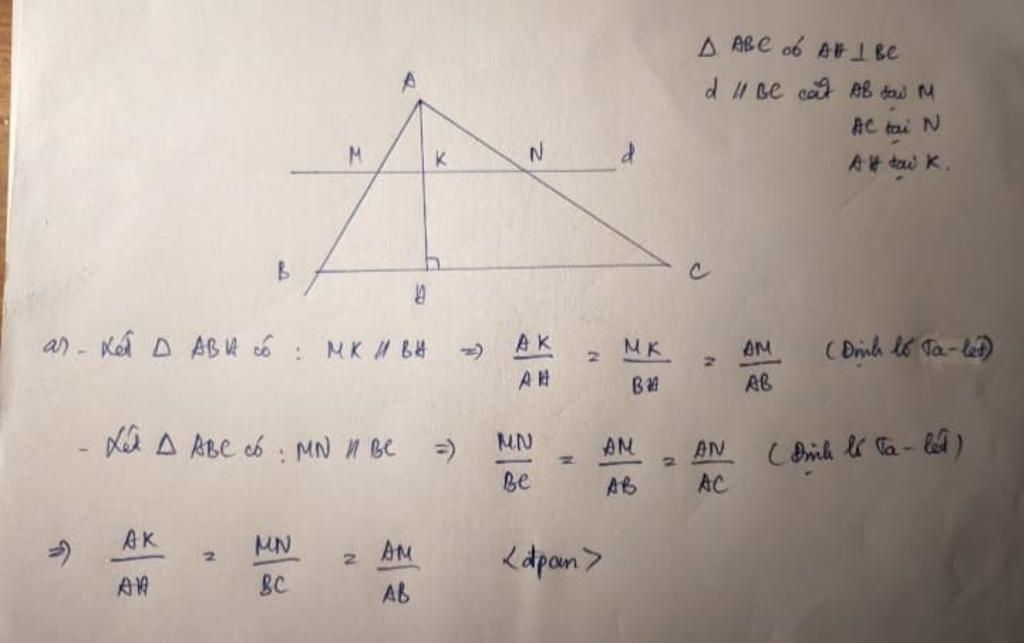 Δ ABC có AH ⊥ BC
d // BC cắt AB tại M
AC tại N
AH tại K.
A
M K N d
B C
H
a) - Xét Δ ABH có : MK // BH ⇒ AK/AH = MK/BH = AM/AB (Định lí Ta-lét)
- Xét Δ ABC có : MN // BC ⇒ MN/BC = AM/AB = AN/AC (Định lí Ta-lét)
⇒ AK/AH = MN/BC = AM/AB <đpcm>